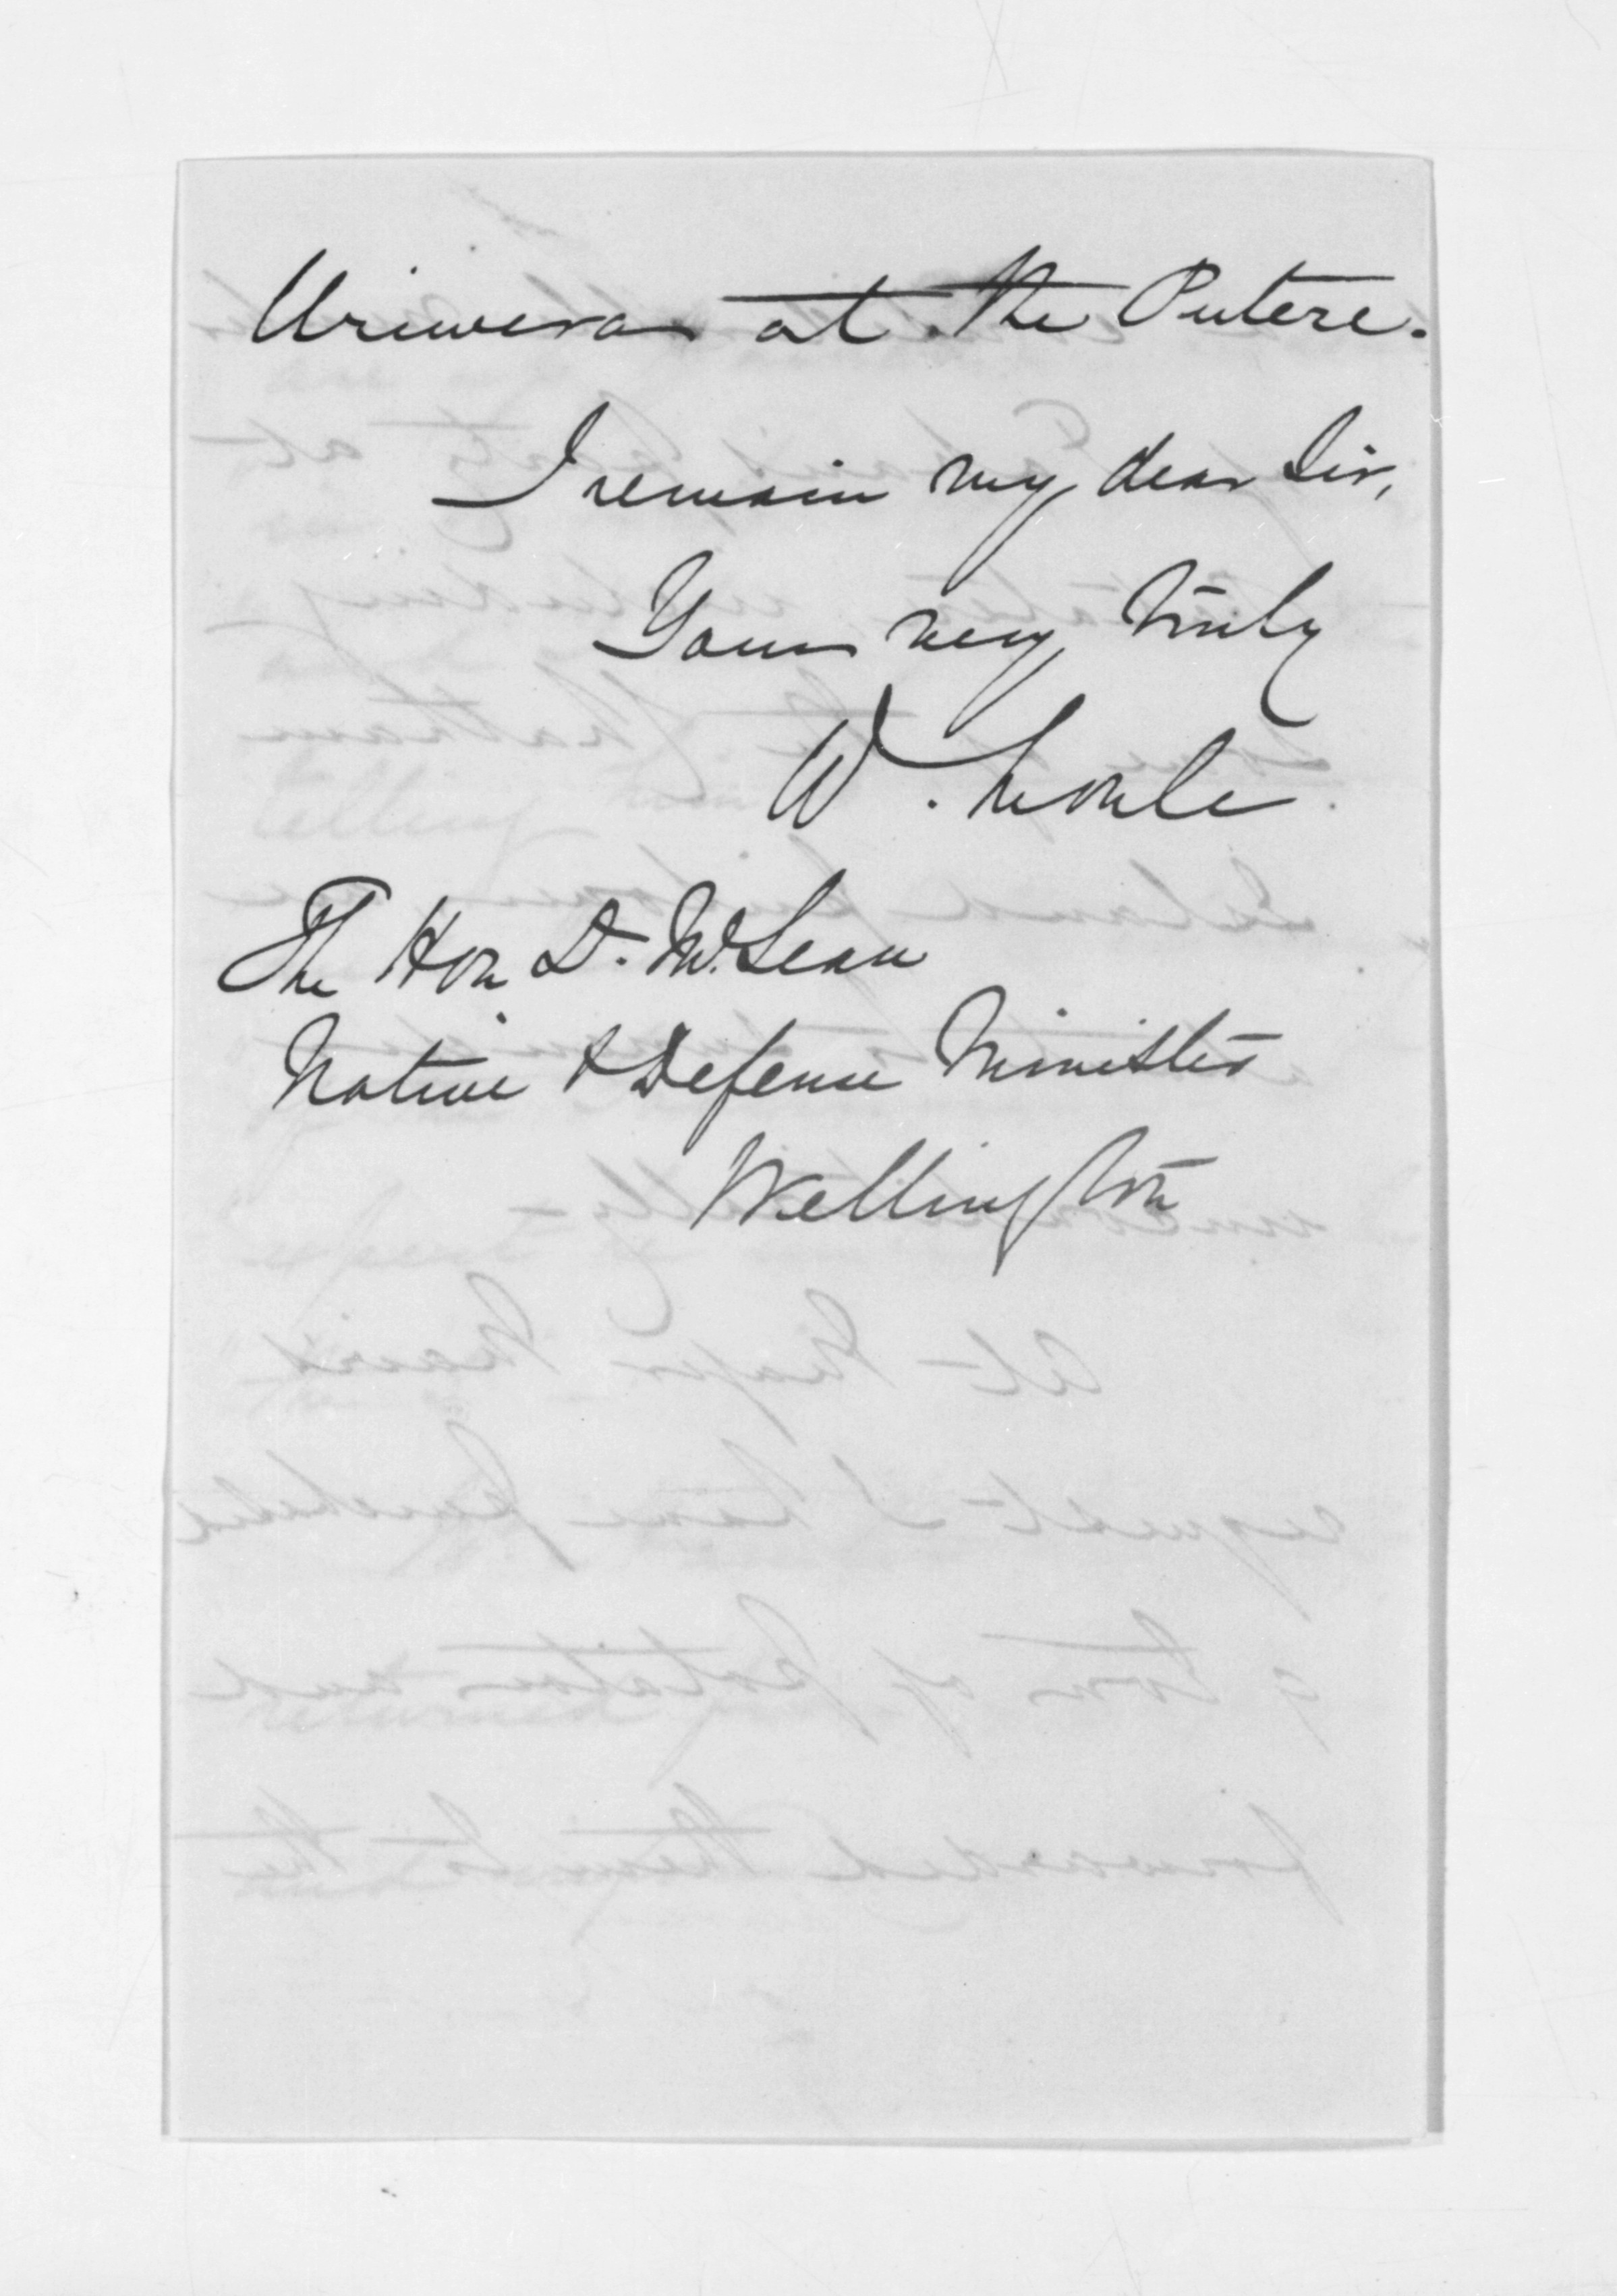 Uriwera at the Putere.
I remain my dear Sir,
Yours very truly
W.
The Hon D. McLean
Native & Defense Minister
Wellington